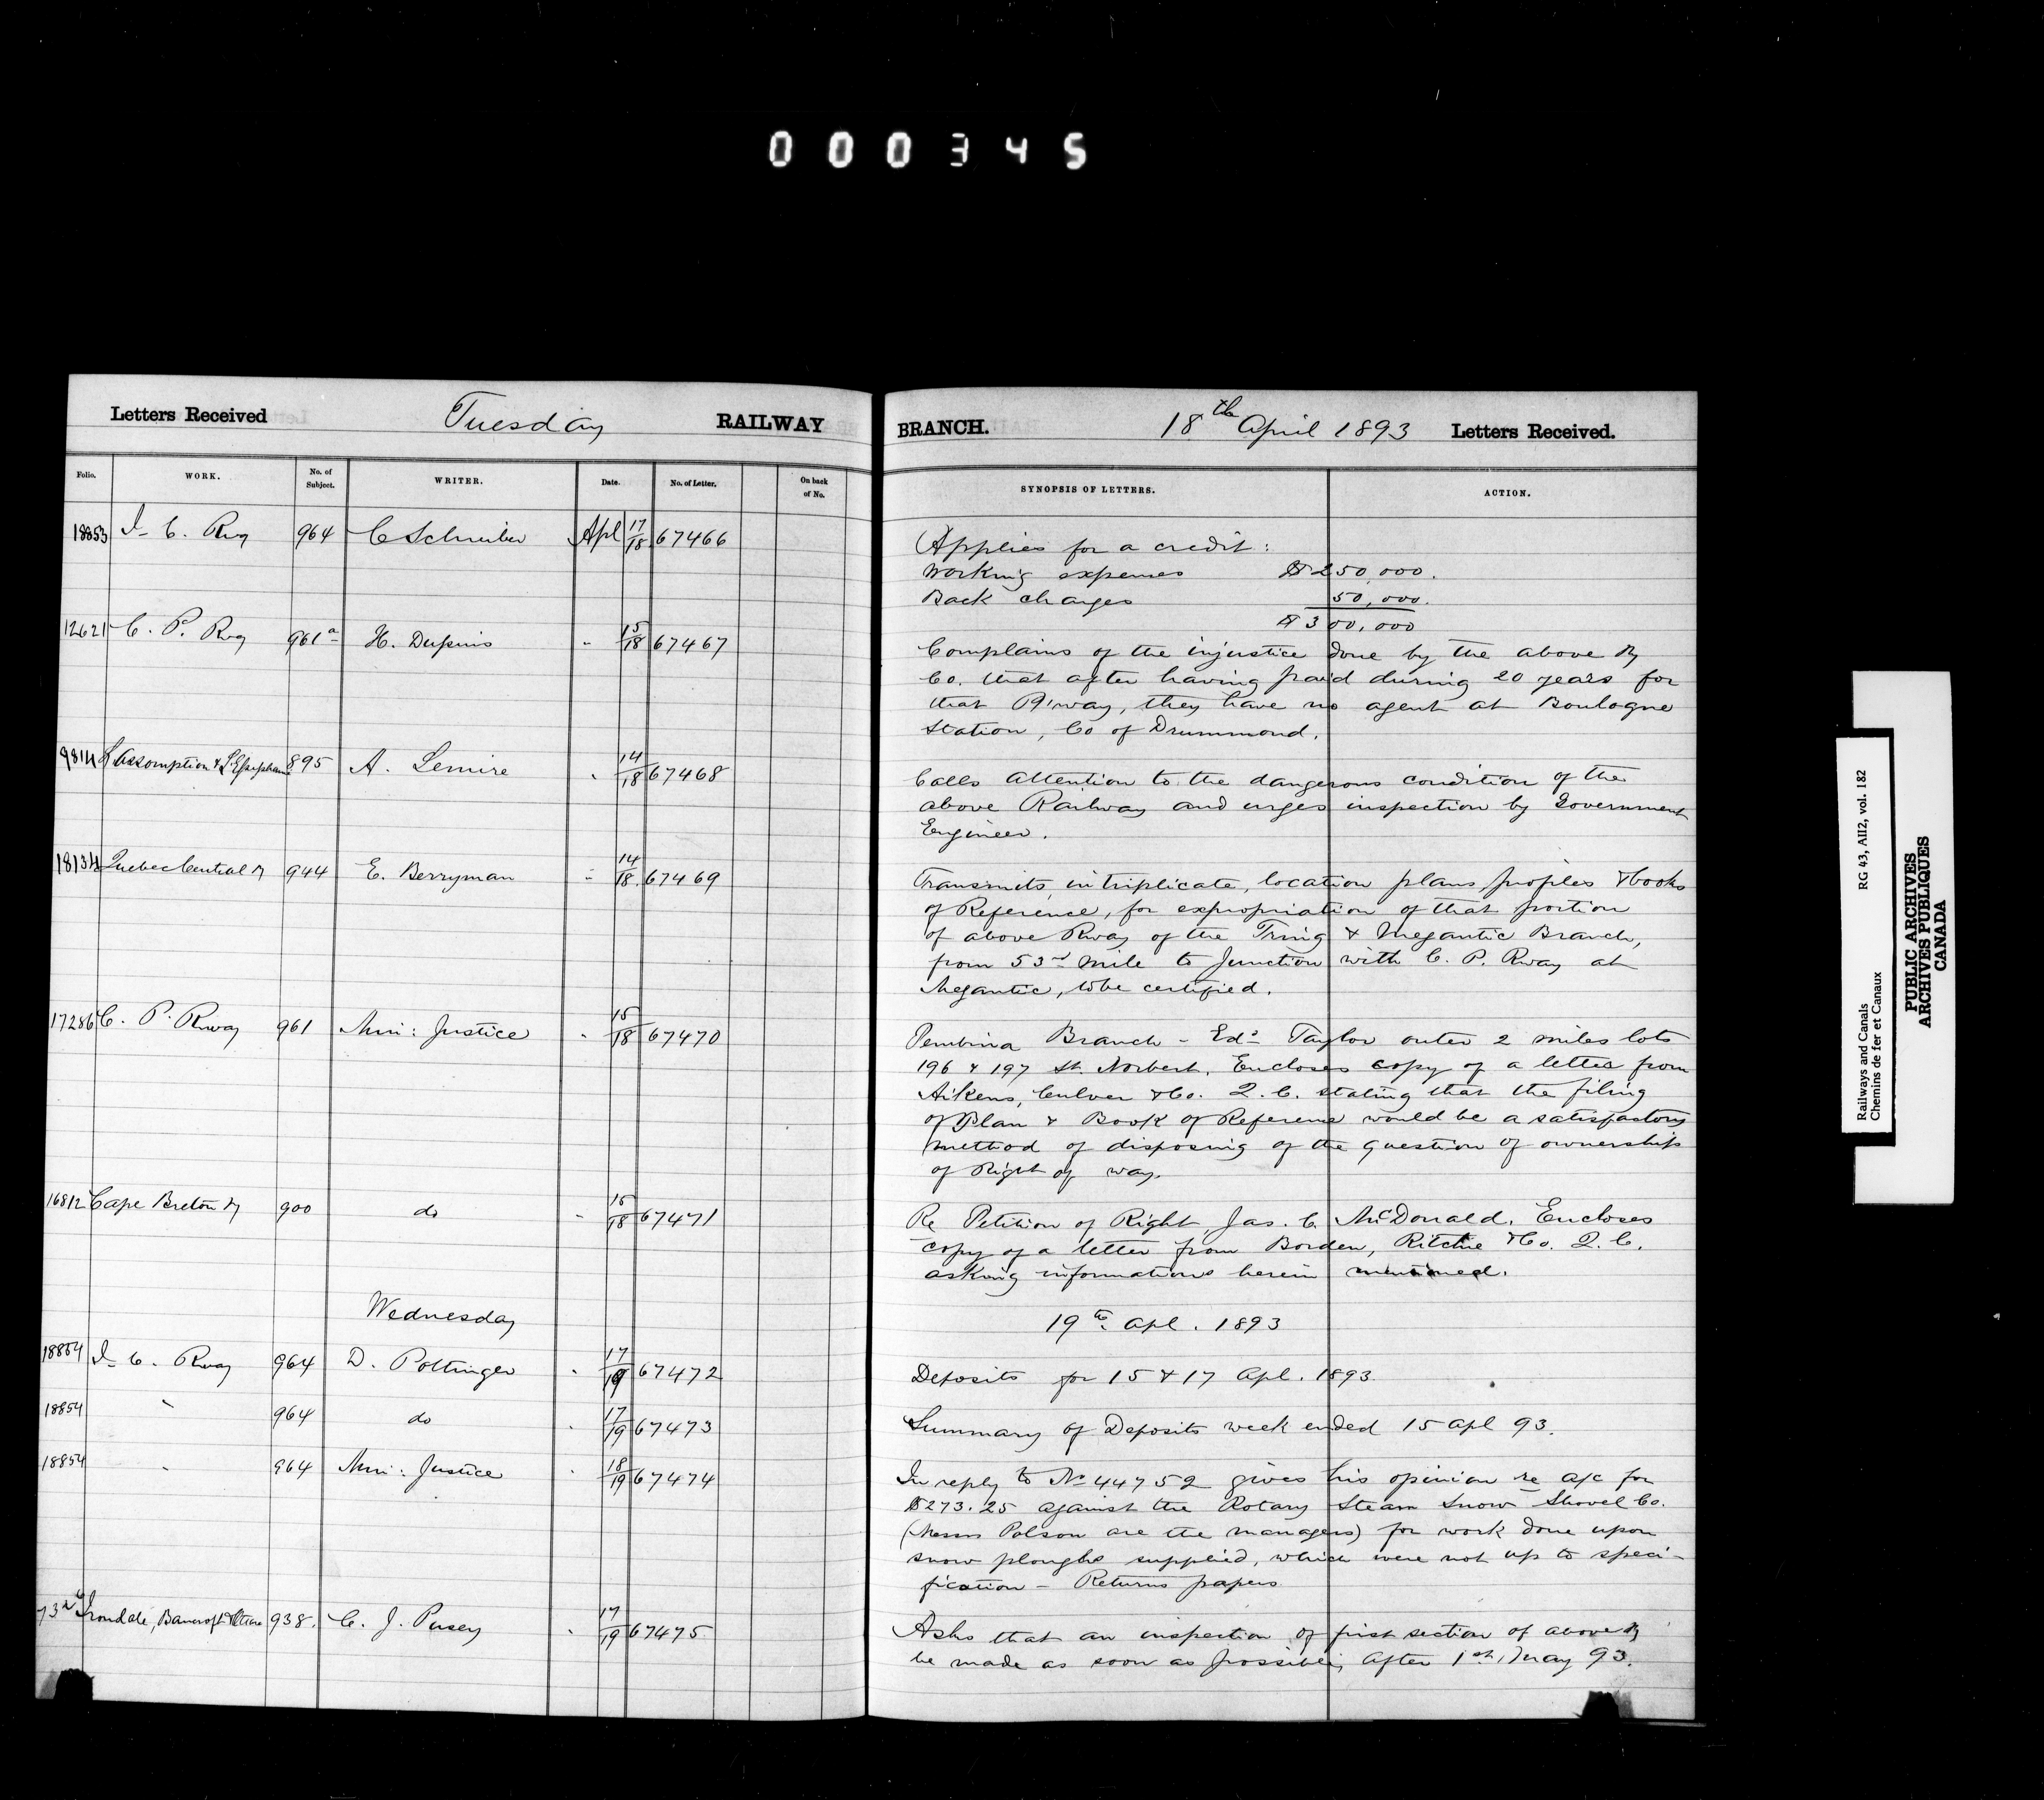 000345
Letters Received Tuesday RAILWAY
Folio. WORK. No. of Subject. WRITER. Date. No. of Letter. On back of No.
18853 I. C. Rwy 964 C Schreiber Apl 17/18 67466
12621 C. P. Rwy 961a H. Dupuis " 15/18 67467
9814 L'Assomption & L'Epiphanie 895 A. Lemire " 14/18 67468
18134 Quebec Central Ry 944 E. Berryman " 14/18 67469
17286 C. P. Rway 961 Min: Justice " 15/18 67470
16812 Cape Breton Ry 900 do " 15/18 67471
Wednesday
18854 I. C. Rway 964 D. Pottinger " 17/19 67472
18854 " 964 do " 17/19 67473
18854 " 964 Min: Justice " 18/19 67474
Irondale, Bancroft & Ottawa 938. C. J. Pusey " 17/19 67475
BRANCH. 18th April 1893 Letters Received.
SYNOPSIS OF LETTERS. ACTION.
Applies for a credit:
Working expenses $250,000.
Back charges 50,000.
$300,000
Complains of the injustice done by the above Ry
Co. that after having paid during 20 years for
that R'way, they have no agent at Boulogne
Station, Co of Drummond.
Calls Attention to the dangerous condition of the
above Railway and urges inspection by Government
Engineer.
Transmits, in triplicate, location plans, profiles & books
of Reference, for expropriation of that portion
of above Rway of the Tring & Megantic Branch,
from 53rd Mile to Junction with C. P. Rway at
Megantic, to be certified.
Pembina Branch - Edd Taylor outer 2 miles lots
196 & 197 St. Norbert. Encloses copy of a letter from
Aikens, Culver & Co. Q.C. stating that the filing
of Plan & Book of Reference would be a satisfactory
method of disposing of the question of ownership
of Right of way.
Re Petition of Right, Jas. C. McDonald. Encloses
copy of a letter from Borden, Ritchie & Co. Q.C.
asking informations herein mentioned.
19th Apl. 1893
Deposits for 15 & 17 Apl. 1893.
Summary of Deposits week ended 15 Apl 93.
In reply to No 44752 gives his opinion re a/c for
$273.25 against the Rotary Steam Snow Shovel Co.
(Messrs Polson are the managers) for work done upon
snow ploughs supplied, which were not up to speci-
fication - Returns papers
Asks that an inspection of first section of above Ry
be made as soon as possible, after 1st May 93.
Railways and Canals RG 43, AII2, vol. 182
Chemins de fer et Canaux
PUBLIC ARCHIVES
ARCHIVES PUBLIQUES
CANADA